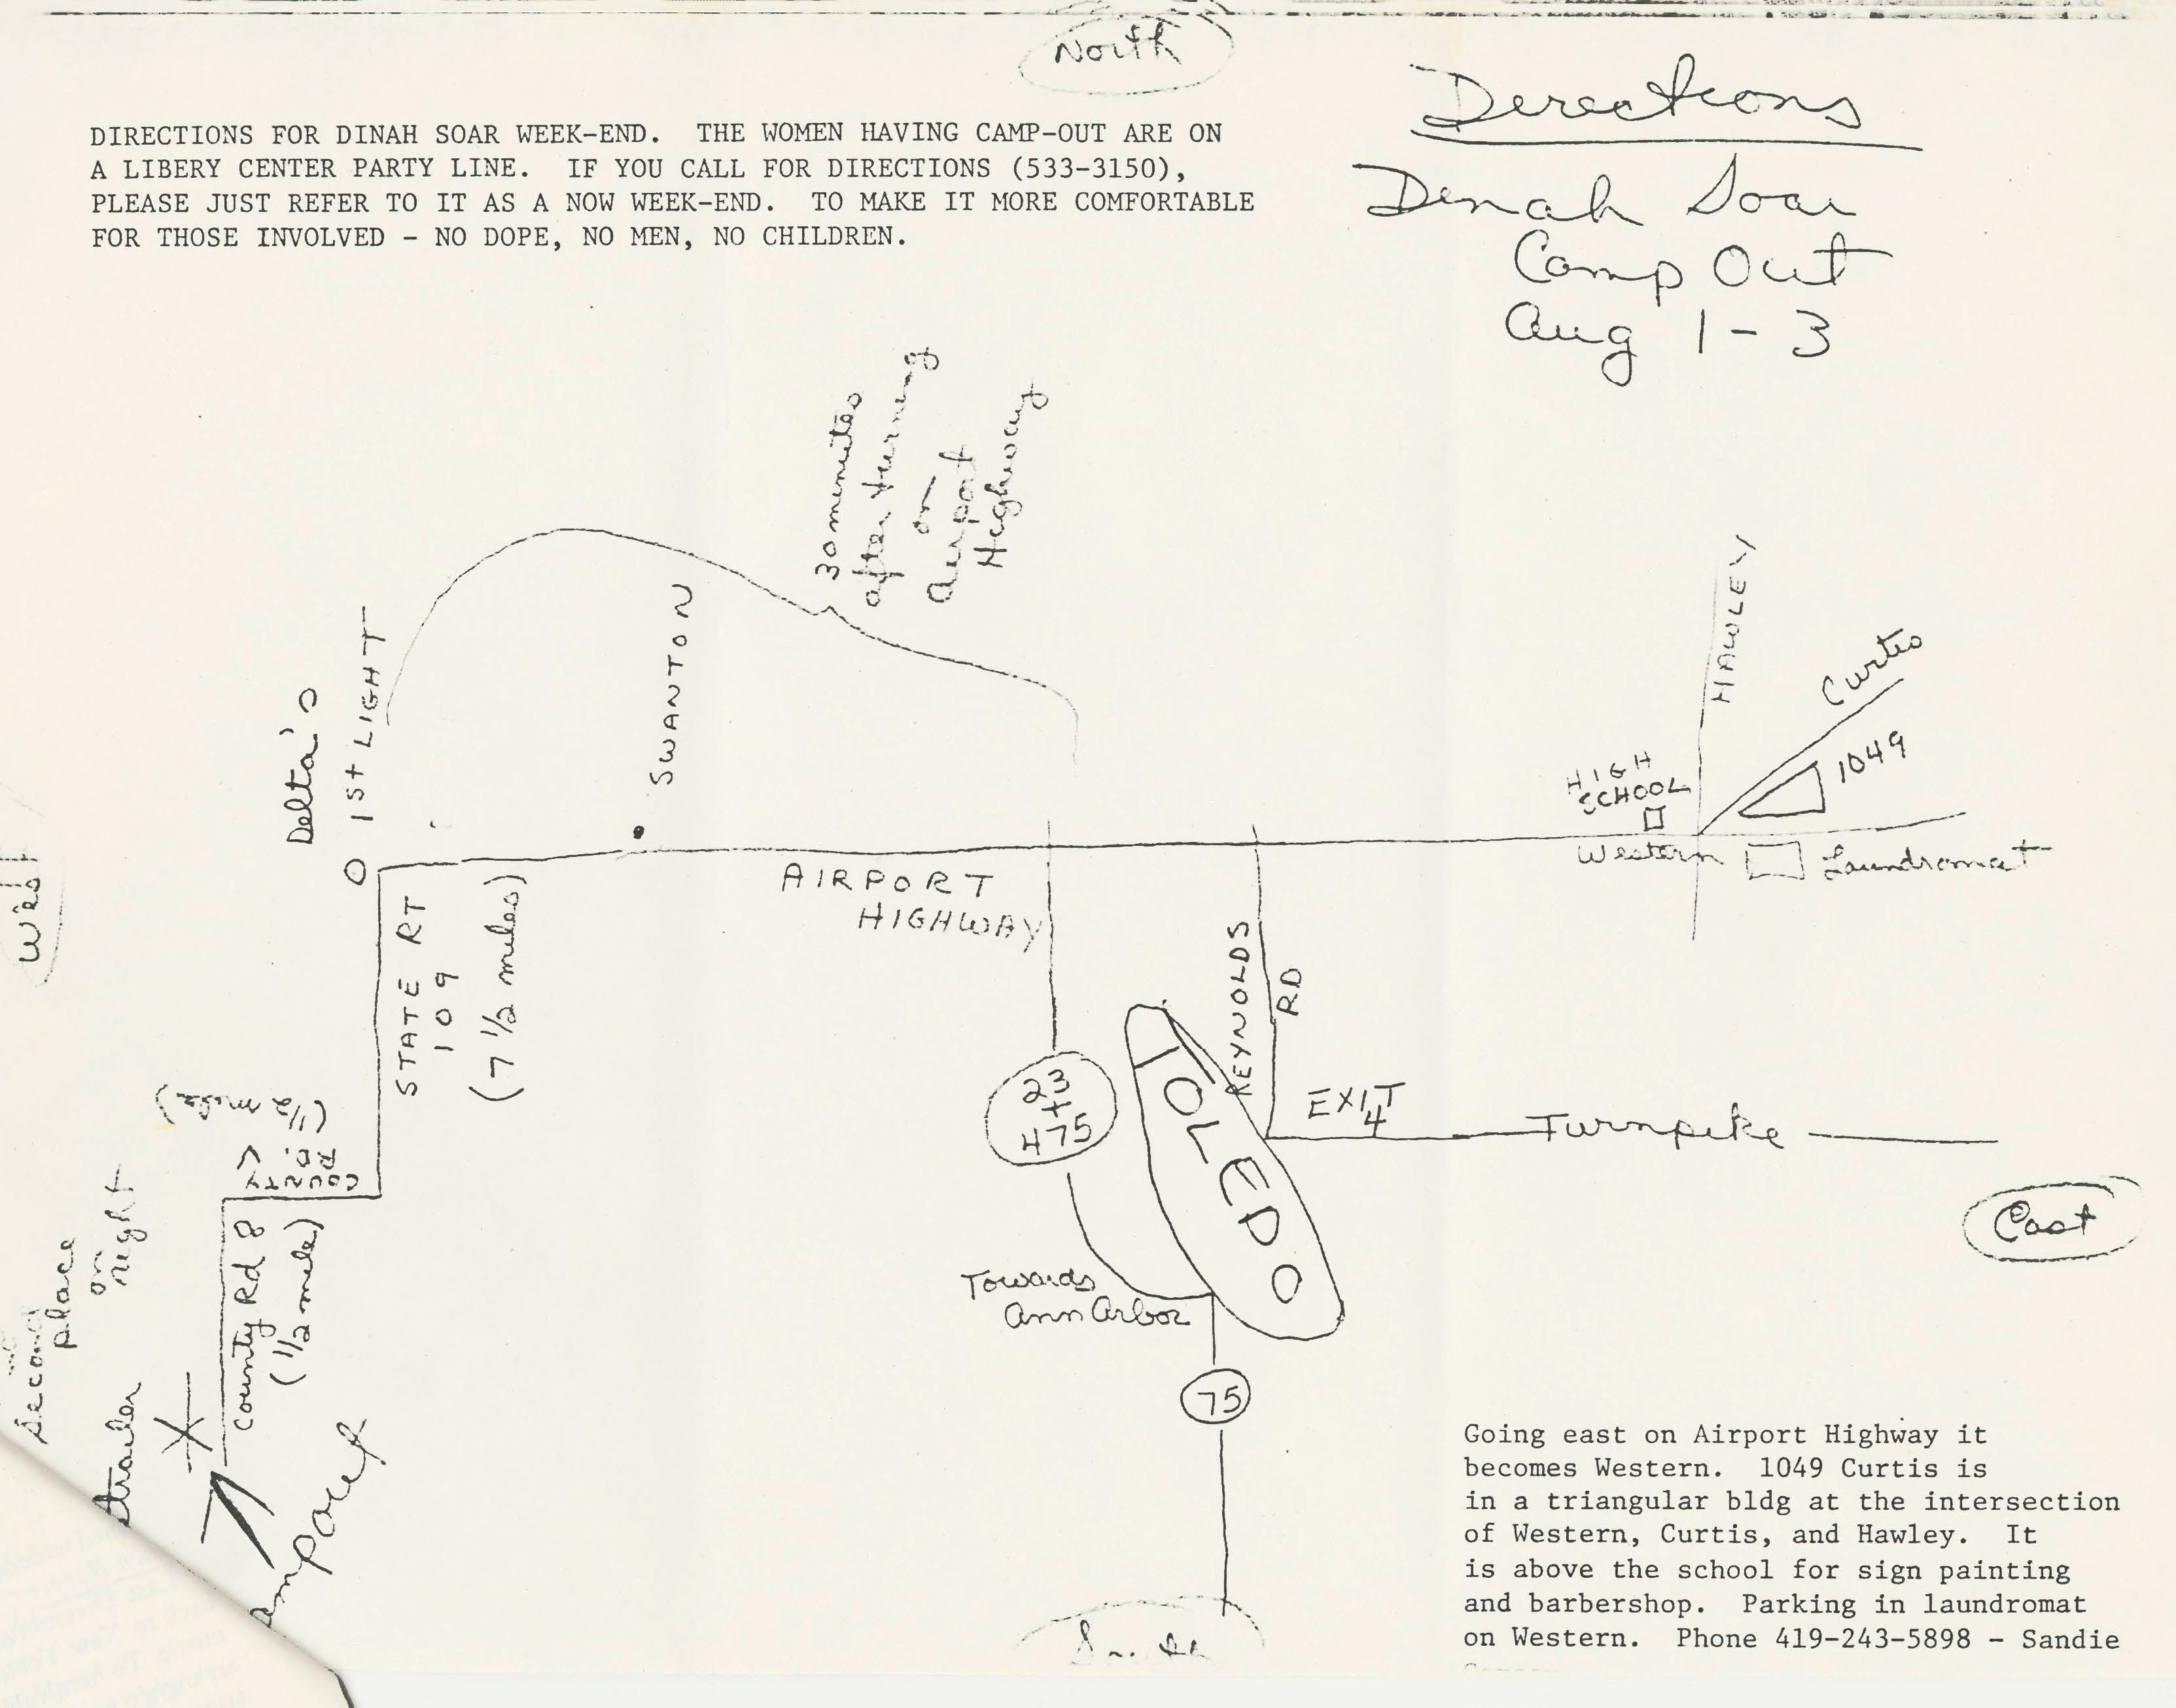 North
Directions
Dinah Soar
Camp Out
Aug 1-3
DIRECTIONS FOR DINAH SOAR WEEK-END. THE WOMEN HAVING CAMP-OUT ARE ON
A LIBERY CENTER PARTY LINE. IF YOU CALL FOR DIRECTIONS (533-3150),
PLEASE JUST REFER TO IT AS A NOW WEEK-END. TO MAKE IT MORE COMFORTABLE
FOR THOSE INVOLVED - NO DOPE, NO MEN, NO CHILDREN.
30 minutes
after turning
on
Airport
Highway
Delta's
1st LIGHT
SWANTON
HAWLEY
Curtis
1049
HIGH
SCHOOL
Western
Laundromat
West
AIRPORT
HIGHWAY
STATE RT
109
(7 1/2 miles)
REYNOLDS
RD
23
+
475
TOLEDO
EXIT
4
Turnpike
East
COUNTY
RD. V
(1/2 mile)
County Rd 8
(1/2 mile)
second
place
on
right
trailer
Towards
Ann Arbor
75
Going east on Airport Highway it
becomes Western. 1049 Curtis is
in a triangular bldg at the intersection
of Western, Curtis, and Hawley. It
is above the school for sign painting
and barbershop. Parking in laundromat
on Western. Phone 419-243-5898 - Sandie